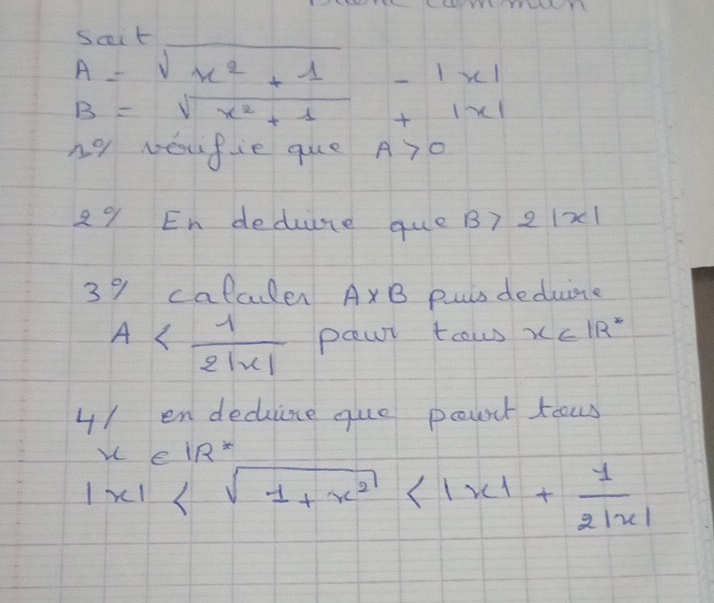 commun
Soit
A = √x² + 1 - |x|
B = √x² + 1 + |x|
1°/ vérifie que A > 0
2°/ En deduire que B > 2|x|
3°/ calculer A x B puis deduire
A < 1/2|x| pour tous x ∈ IR*
4/ en deduire que pourt tous
x ∈ IR*
|x| < √1 + x² < |x| + 1/2|x|